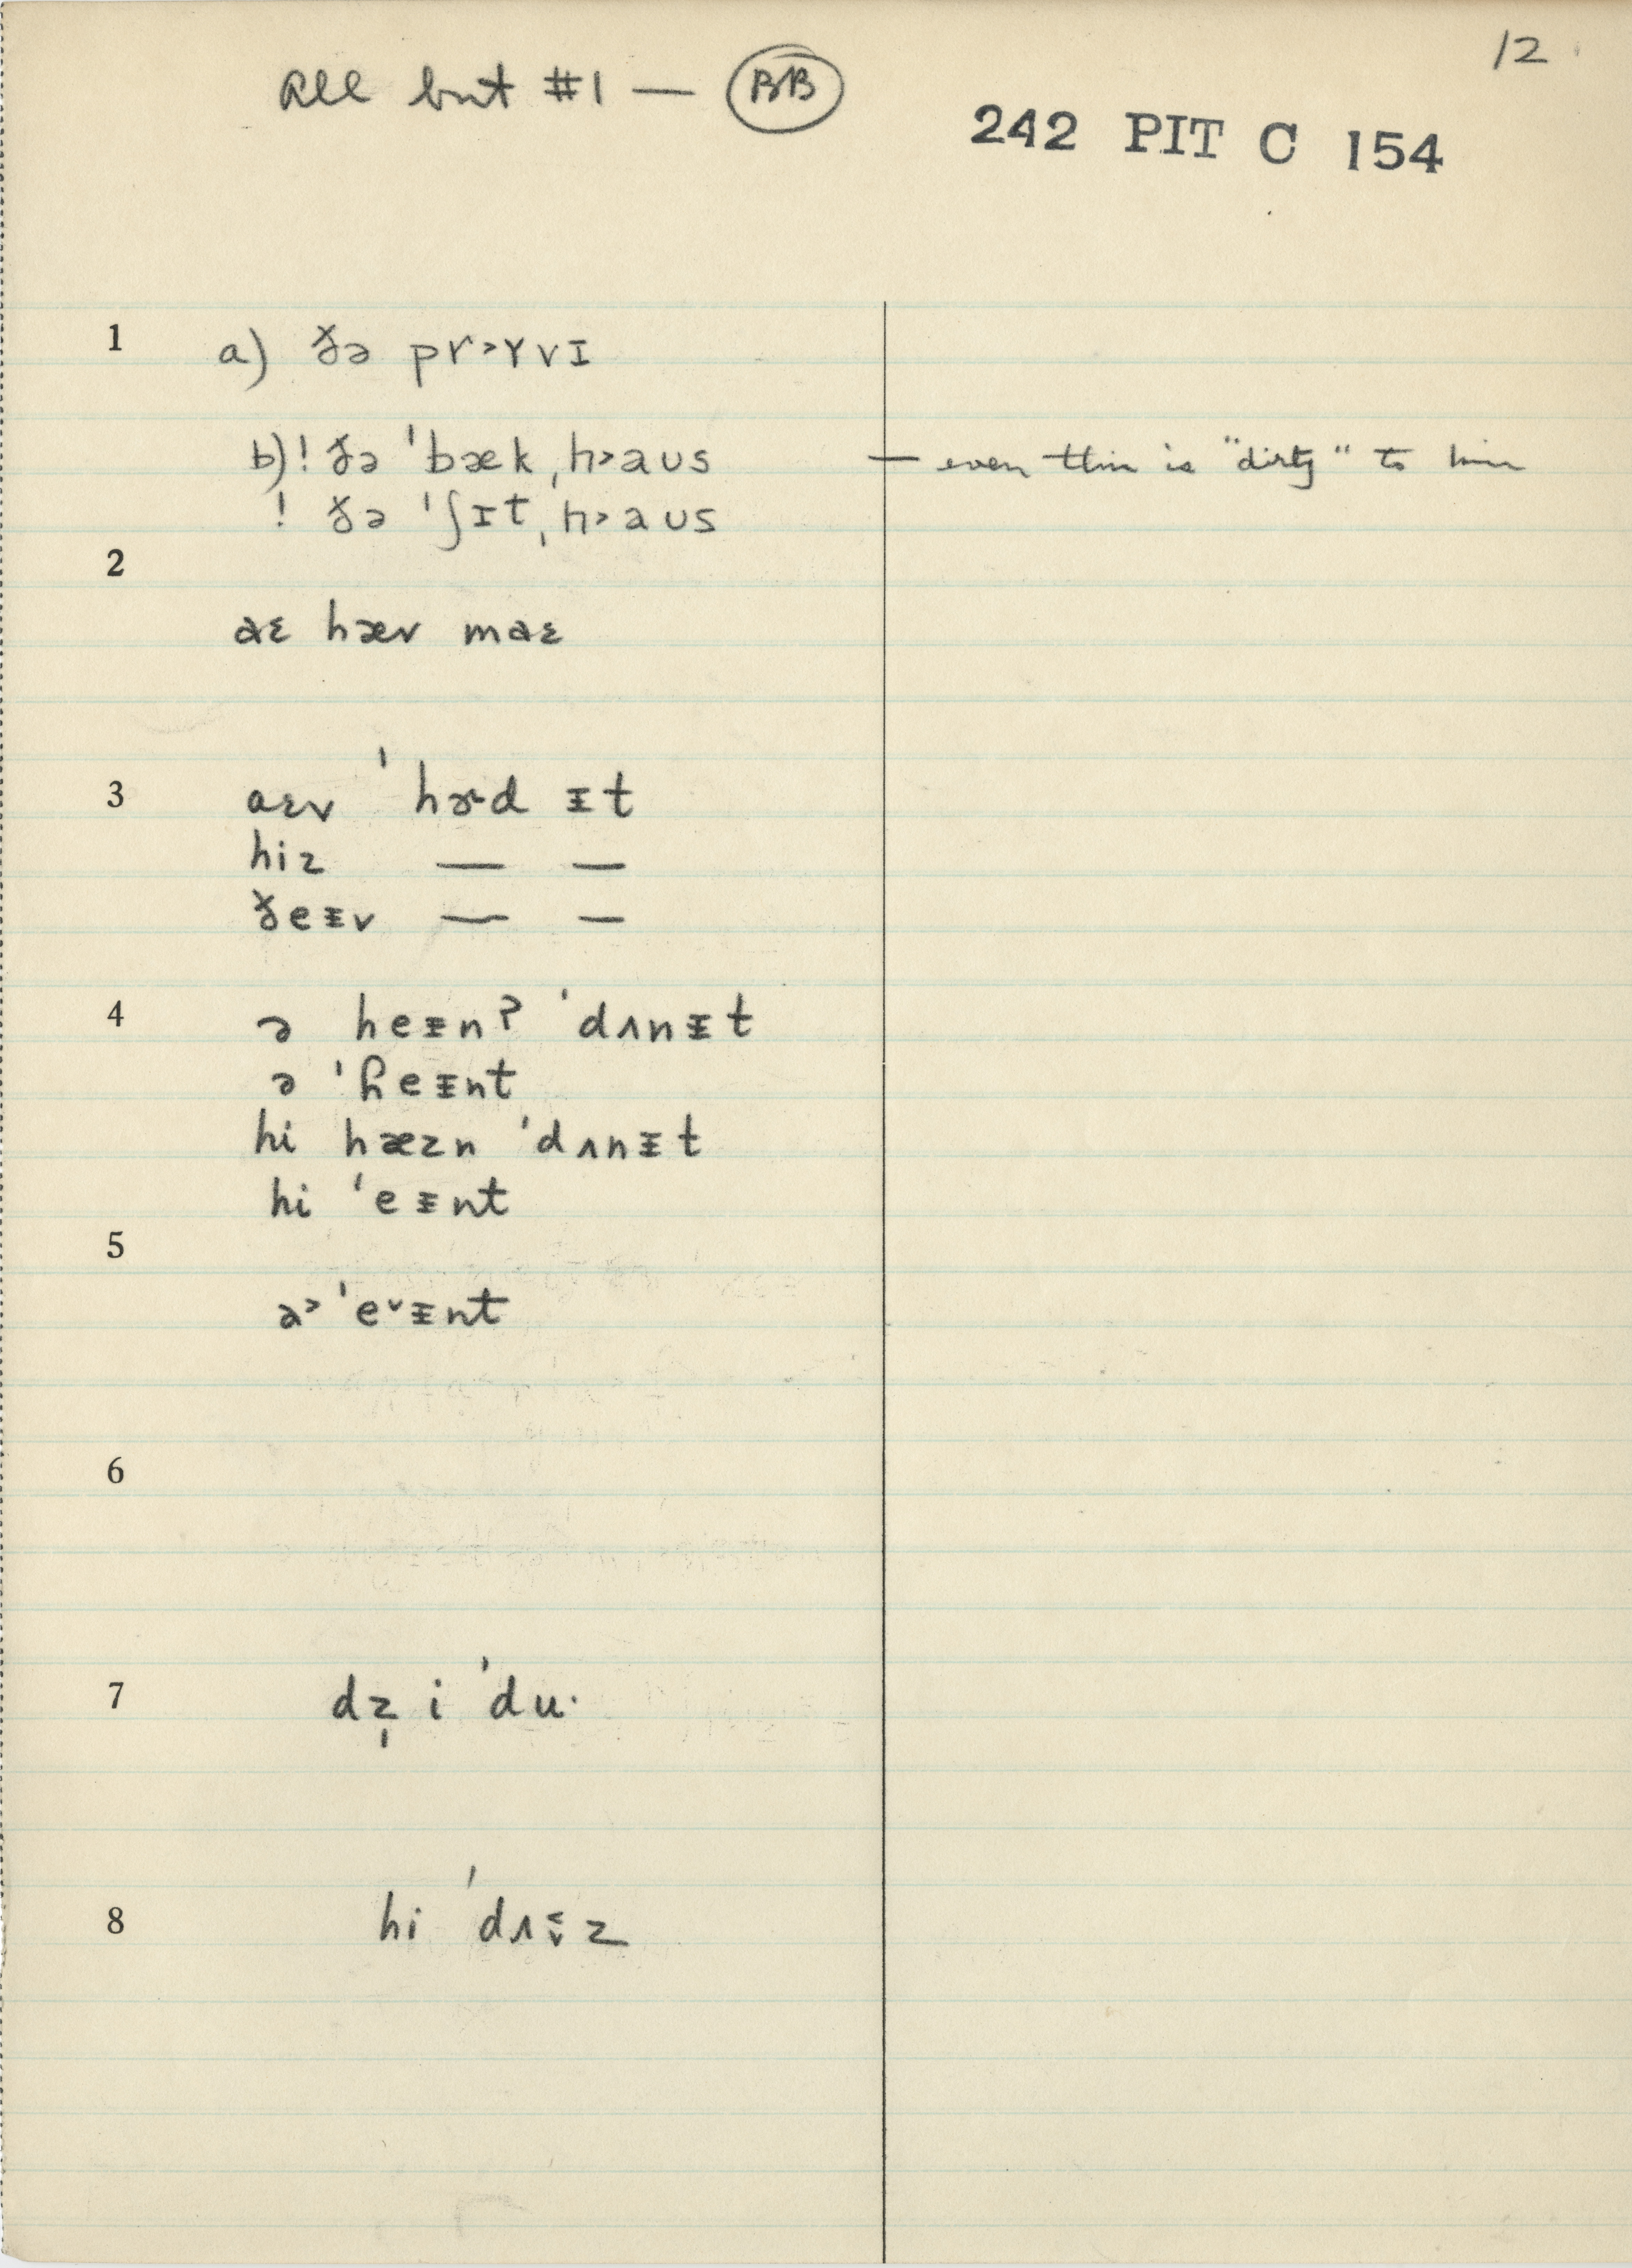 12
All but #1 — BB
242 PIT C 154
1 a) ðə pr˃ɤvɪ
b) ! ðə ˈbækˌh˃aʊs — even this is "dirty" to him
! ðə ˈʃɪtˌh˃aʊs
2
aɛ hæv maɛ
3 aɛv ˈhɚd ᵻt
hiz — —
ðeᵻv — —
4 ə heᵻnʔ ˈdʌnᵻt
ə ˈɦeᵻnt
hi hæzn ˈdʌnᵻt
hi ˈeᵻnt
5
a˃ ˈe˅ᵻnt
6
7 dz̩ i ˈdu·
8 hi ˈdʌᵻ̬z